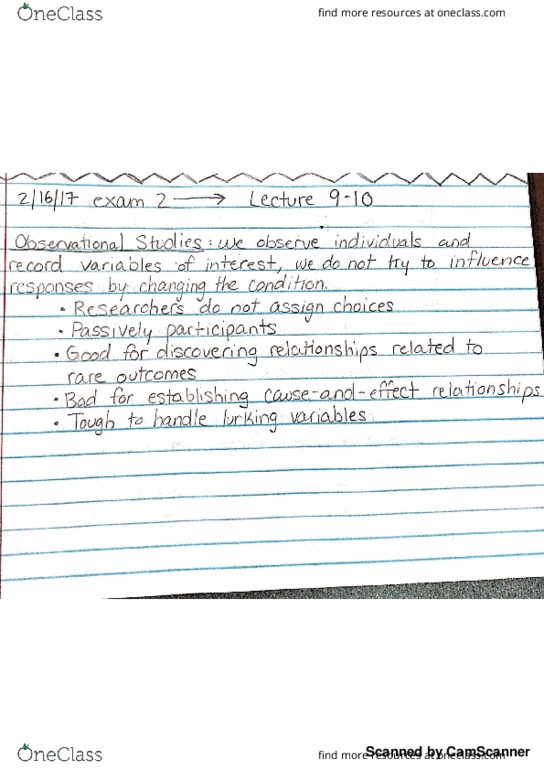 OneClass
find more resources at oneclass.com
2/16/17 exam 2 → Lecture 9-10
Observational Studies: we observe individuals and
record variables of interest, we do not try to influence
responses by changing the condition.
• Researchers do not assign choices
• Passively participants
• Good for discovering relationships related to
rare outcomes
• Bad for establishing cause-and-effect relationships
• Tough to handle lurking variables
OneClass
find more resources at oneclass.com
Scanned by CamScanner